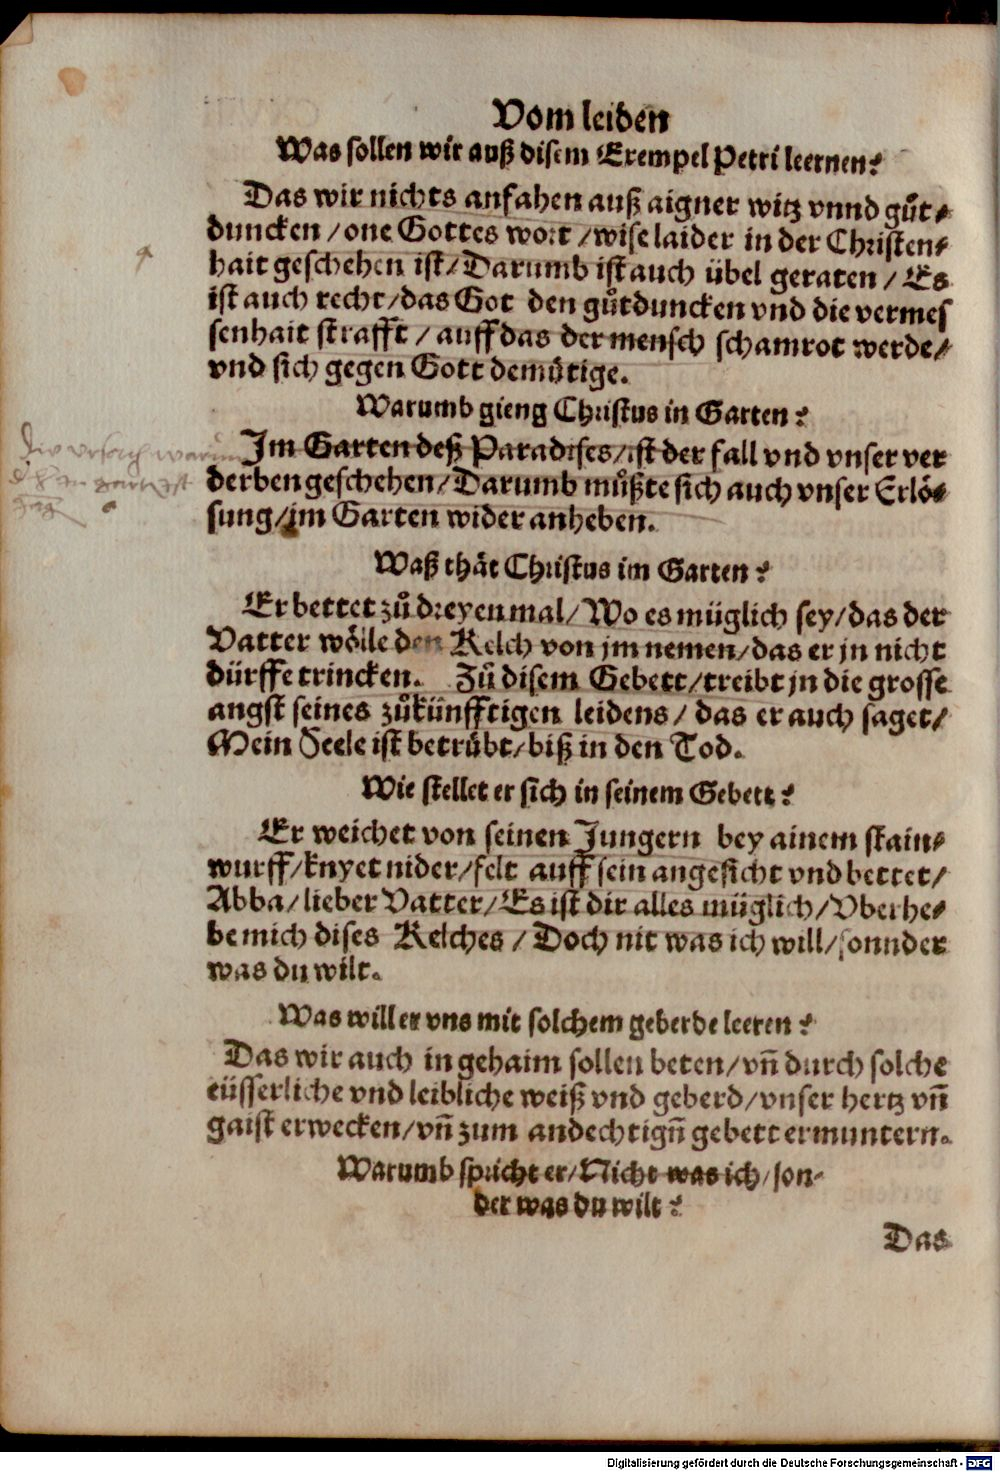 Vom leiden
Was sollen wir auß disem Exempel Petri leernen?
Das wir nichts anfahen auß aigner witz vnnd gůt-
duncken / one Gottes wort / wise laider in der Christen-
hait geschehen ist / Darumb ist auch übel geraten / Es
ist auch recht / das Got den gůtduncken vnd die vermes
senhait strafft / auff das der mensch schamrot werde /
vnd sich gegen Gott demütige.
Warumb gieng Christus in Garten?
Im Garten deß Paradises / ist der fall vnd vnser ver
derben geschehen / Darumb můßte sich auch vnser Erlö-
sung / im Garten wider anheben.
Die vrsach warum
Waß thät Christus im Garten?
Er bettet zů dreyen mal / Wo es müglich sey / das der
Vatter wölle den Kelch von jm nemen / das er jn nicht
dürffe trincken. Zů disem Gebett / treibt jn die grosse
angst seines zůkünfftigen leidens / das er auch saget /
Mein Seele ist betrübt / biß in den Tod.
Wie stellet er sich in seinem Gebett?
Er weichet von seinen Jungern bey ainem stain-
wurff / knyet nider / felt auff sein angesicht vnd bettet /
Abba / lieber Vatter / Es ist dir alles müglich / Vberhe-
be mich dises Kelches / Doch nit was ich will / sonnder
was du wilt.
Was will er vns mit solchem geberde leeren?
Das wir auch in gehaim sollen beten / vñ durch solche
eüsserliche vnd leibliche weiß vnd geberd / vnser hertz vñ
gaist erwecken / vñ zum andechtigñ gebett ermuntern.
Warumb spricht er / Nicht was ich / son-
der was du wilt?
Das
Digitalisierung gefördert durch die Deutsche Forschungsgemeinschaft - DFG